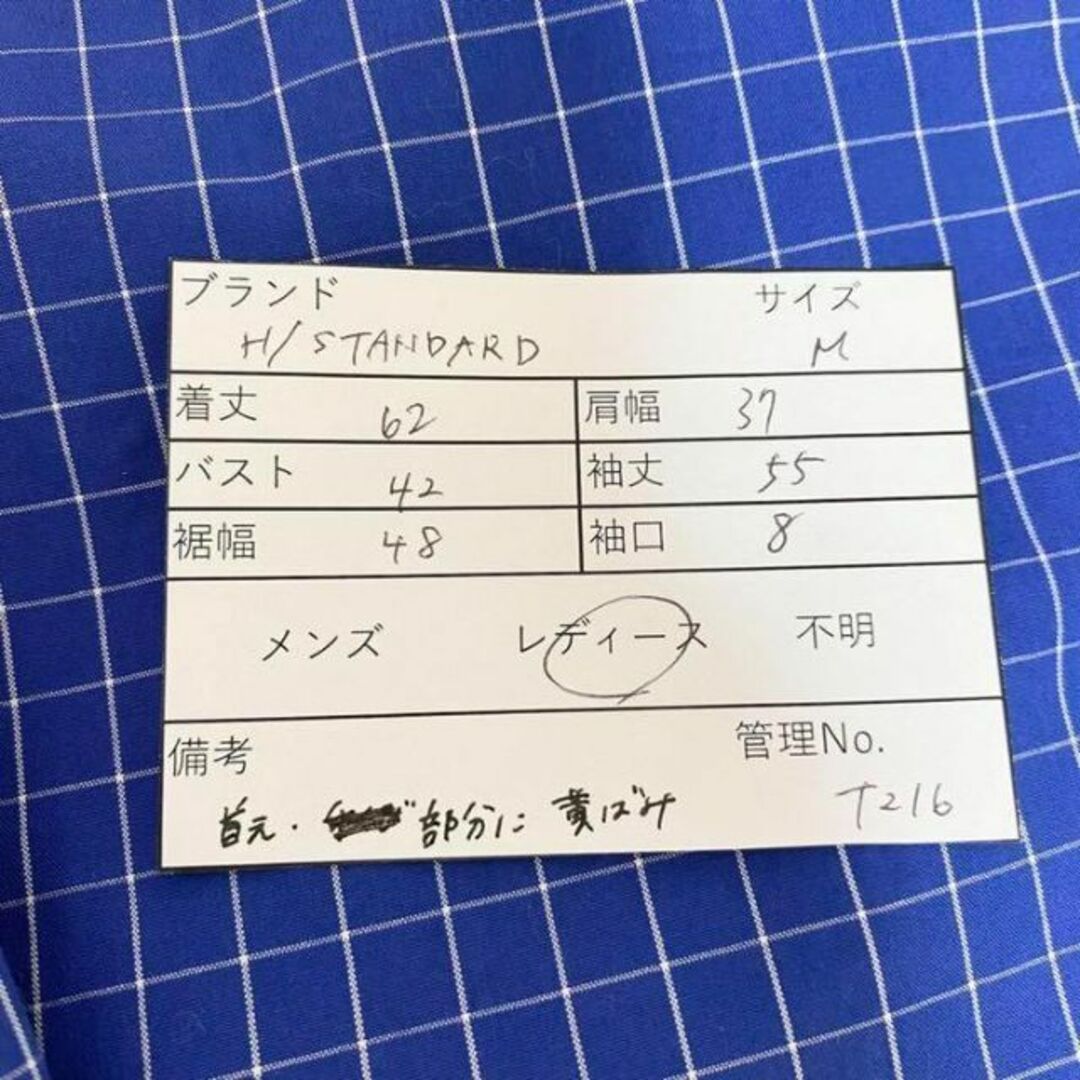 ブランド サイズ
H/STANDARD M
着丈 62 肩幅 37
バスト 42 袖丈 55
裾幅 48 袖口 8
メンズ レディース 不明
備考 管理No.
首元・ 部分に 黄ばみ T216